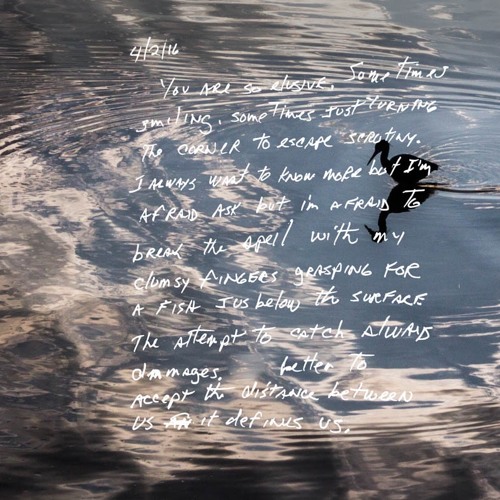 4/2/16
You are so elusive. Sometimes
smiling, sometimes just turning
the corner to escape scrutiny.
I always want to know more but I'm
afraid ask but im afraid to
break the spell with my
clumsy fingers grasping for
a fish jus below the surface
The attempt to catch always
dammages. better to
accept the distance between
us it defines us.